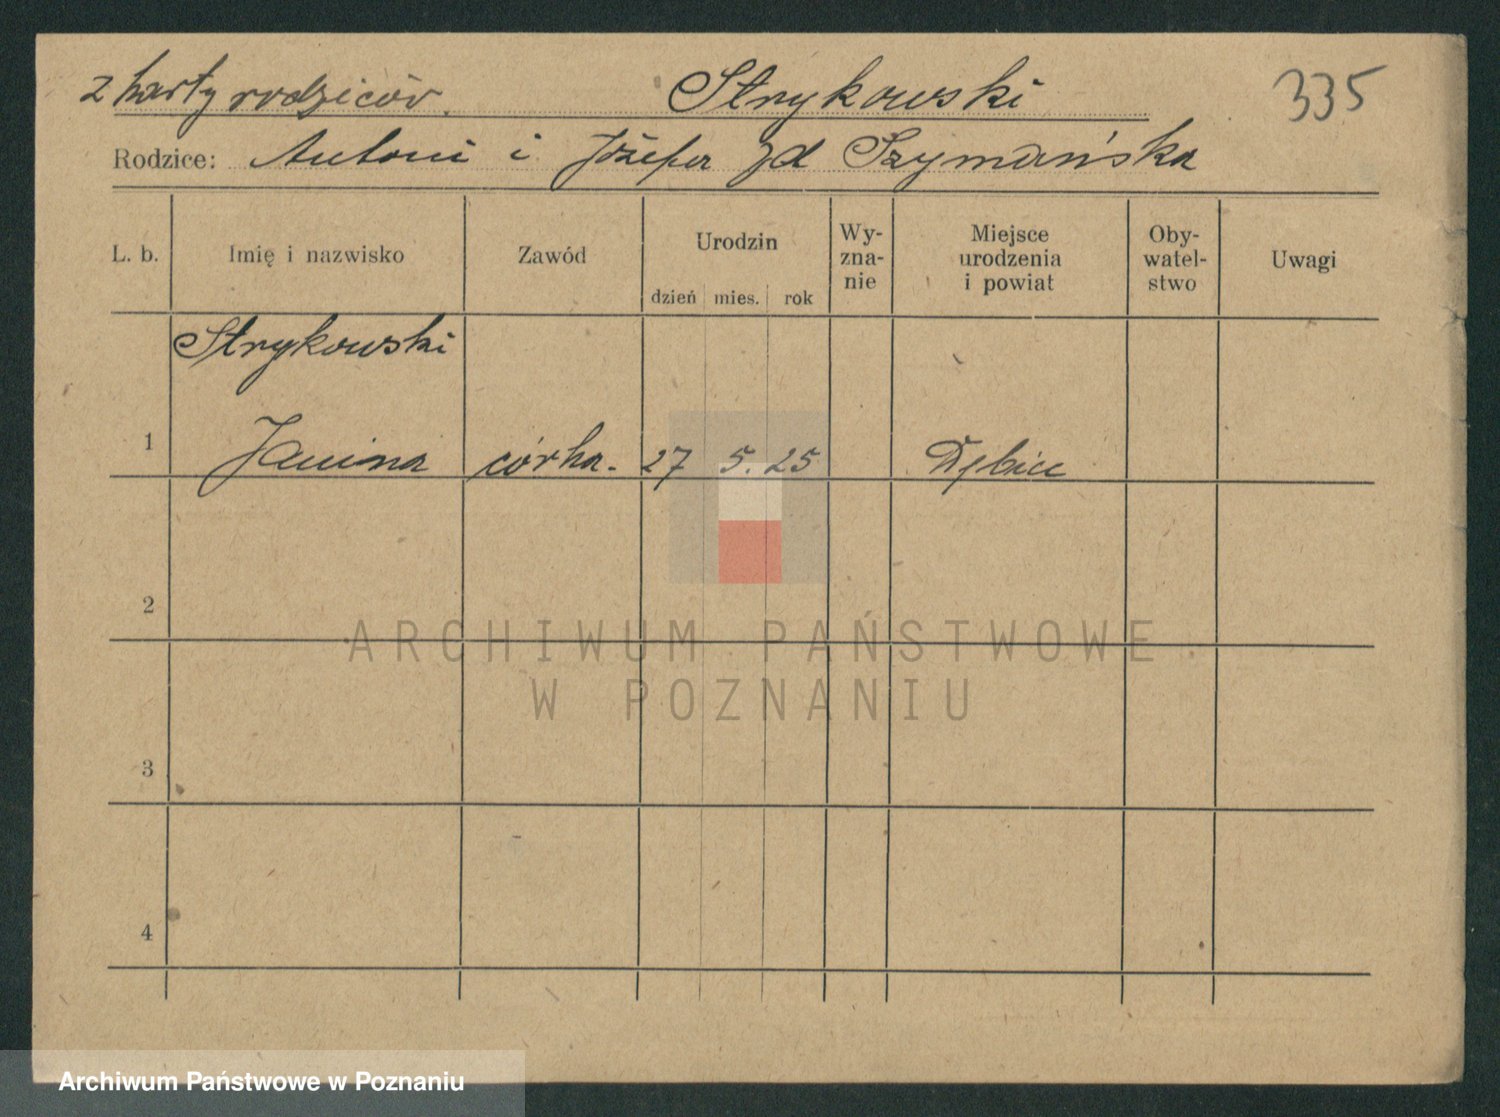 z karty rodziców. Strykowski 335
Rodzice: Antoni i Józefa zd Szymańska
L. b. Imię i nazwisko Zawód Urodzin dzień mies. rok Wy-zna-nie Miejsce urodzenia i powiat Oby-watel-stwo Uwagi
Strykowski
1 Janina córka. 27 5. 25 Dębiec
2
ARCHIWUM PAŃSTWOWE
W POZNANIU
3
4
Archiwum Państwowe w Poznaniu